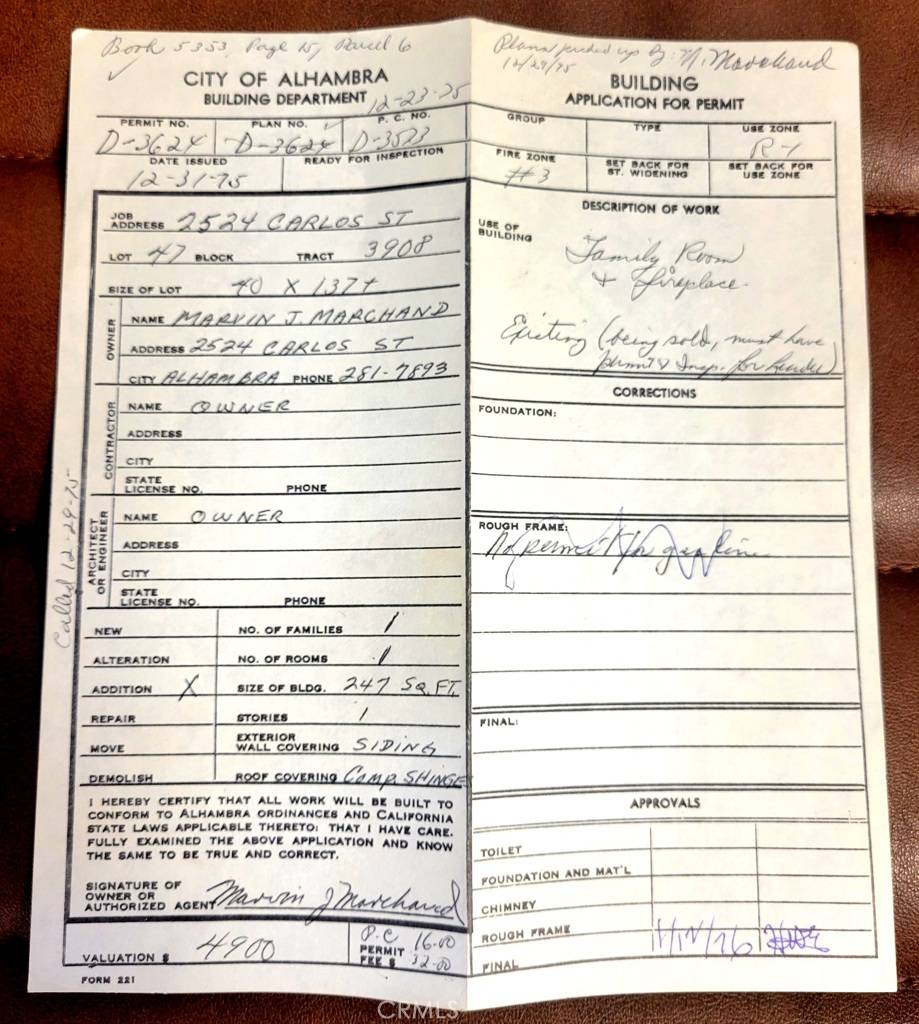 Book 5353, Page 15, Parcel 6
✓
CITY OF ALHAMBRA
BUILDING DEPARTMENT 12-23-75
PERMIT NO. PLAN NO. ✓ P. C. NO.
D-3624 D-3624 D-3523
DATE ISSUED READY FOR INSPECTION
12-31-75
JOB ADDRESS 2524 CARLOS ST
LOT 47 BLOCK TRACT 3908
SIZE OF LOT 40 X 137+
OWNER
NAME MARVIN J. MARCHAND
ADDRESS 2524 CARLOS ST
CITY ALHAMBRA PHONE 281-7893
CONTRACTOR
NAME OWNER
ADDRESS
CITY
STATE
LICENSE NO. PHONE
Called 12-29-75
ARCHITECT
OR ENGINEER
NAME OWNER
ADDRESS
CITY
STATE
LICENSE NO. PHONE
NEW NO. OF FAMILIES 1
ALTERATION NO. OF ROOMS 1
ADDITION X SIZE OF BLDG. 247 SQ. FT.
REPAIR STORIES 1
MOVE EXTERIOR WALL COVERING SIDING
DEMOLISH ROOF COVERING COMP. SHINGE
I HEREBY CERTIFY THAT ALL WORK WILL BE BUILT TO
CONFORM TO ALHAMBRA ORDINANCES AND CALIFORNIA
STATE LAWS APPLICABLE THERETO: THAT I HAVE CARE.
FULLY EXAMINED THE ABOVE APPLICATION AND KNOW
THE SAME TO BE TRUE AND CORRECT.
SIGNATURE OF
OWNER OR
AUTHORIZED AGENT Marvin J Marchand
VALUATION $ 4900
P.C 16.00
PERMIT
FEE $ 32.00
FORM 221
Plans picked up by: M. Marchand
12/29/75
BUILDING
APPLICATION FOR PERMIT
GROUP TYPE USE ZONE
R-1
FIRE ZONE SET BACK FOR ST. WIDENING SET BACK FOR USE ZONE
#3
DESCRIPTION OF WORK
USE OF
BUILDING
Family Room
& Fireplace.
Existing (being sold, must have
permit & Insp. for lender)
CORRECTIONS
FOUNDATION:
ROUGH FRAME:
No permit for gas line
FINAL:
APPROVALS
TOILET
FOUNDATION AND MAT'L
CHIMNEY
ROUGH FRAME 1/12/76
FINAL
CRMLS